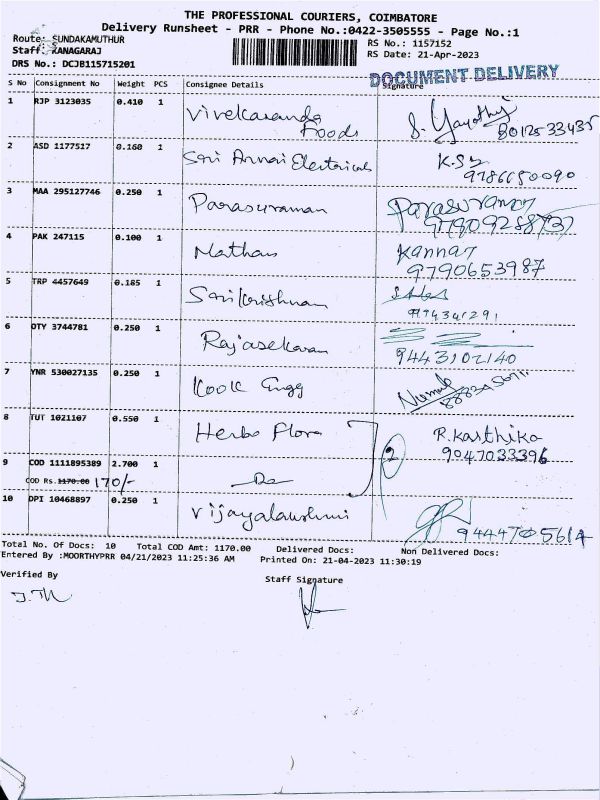 THE PROFESSIONAL COURIERS, COIMBATORE
Delivery Runsheet - PRR - Phone No.:0422-3505555 - Page No.:1
Route: SUNDAKAMUTHUR
RS No.: 1157152
Staff: KANAGARAJ
RS Date: 21-Apr-2023
DRS No.: DCJB115715201
DOCUMENT DELIVERY
S No Consignment No Weight PCS Consignee Details Signature
1 RJP 3123035 0.410 1 Vivekananda Foods S. Gayathri 8012533435
2 ASD 1177517 0.160 1 Sri Annai Electricals K.S 9786650090
3 MAA 295127746 0.250 1 Parasuraman Parasuraman
4 PAK 247115 0.100 1 Mathan Kannan 9790653987
5 TRP 4457649 0.185 1 Sri Krishnam
6 OTY 3744781 0.250 1 Rajasekaran 9443102140
7 YNR 530027135 0.250 1 Kook Engg
8 TUT 1021107 0.550 1 Herbo Flora 2 R.Karthika 9047033396
9 COD 1111895389 2.700 1 Do
COD Rs.1170.00 1170/-
10 DPI 10468897 0.250 1 Vijayalakshmi 9444705614
Total No. Of Docs: 10 Total COD Amt: 1170.00 Delivered Docs: Non Delivered Docs:
Entered By :MOORTHYPRR 04/21/2023 11:25:36 AM Printed On: 21-04-2023 11:30:19
Verified By Staff Signature